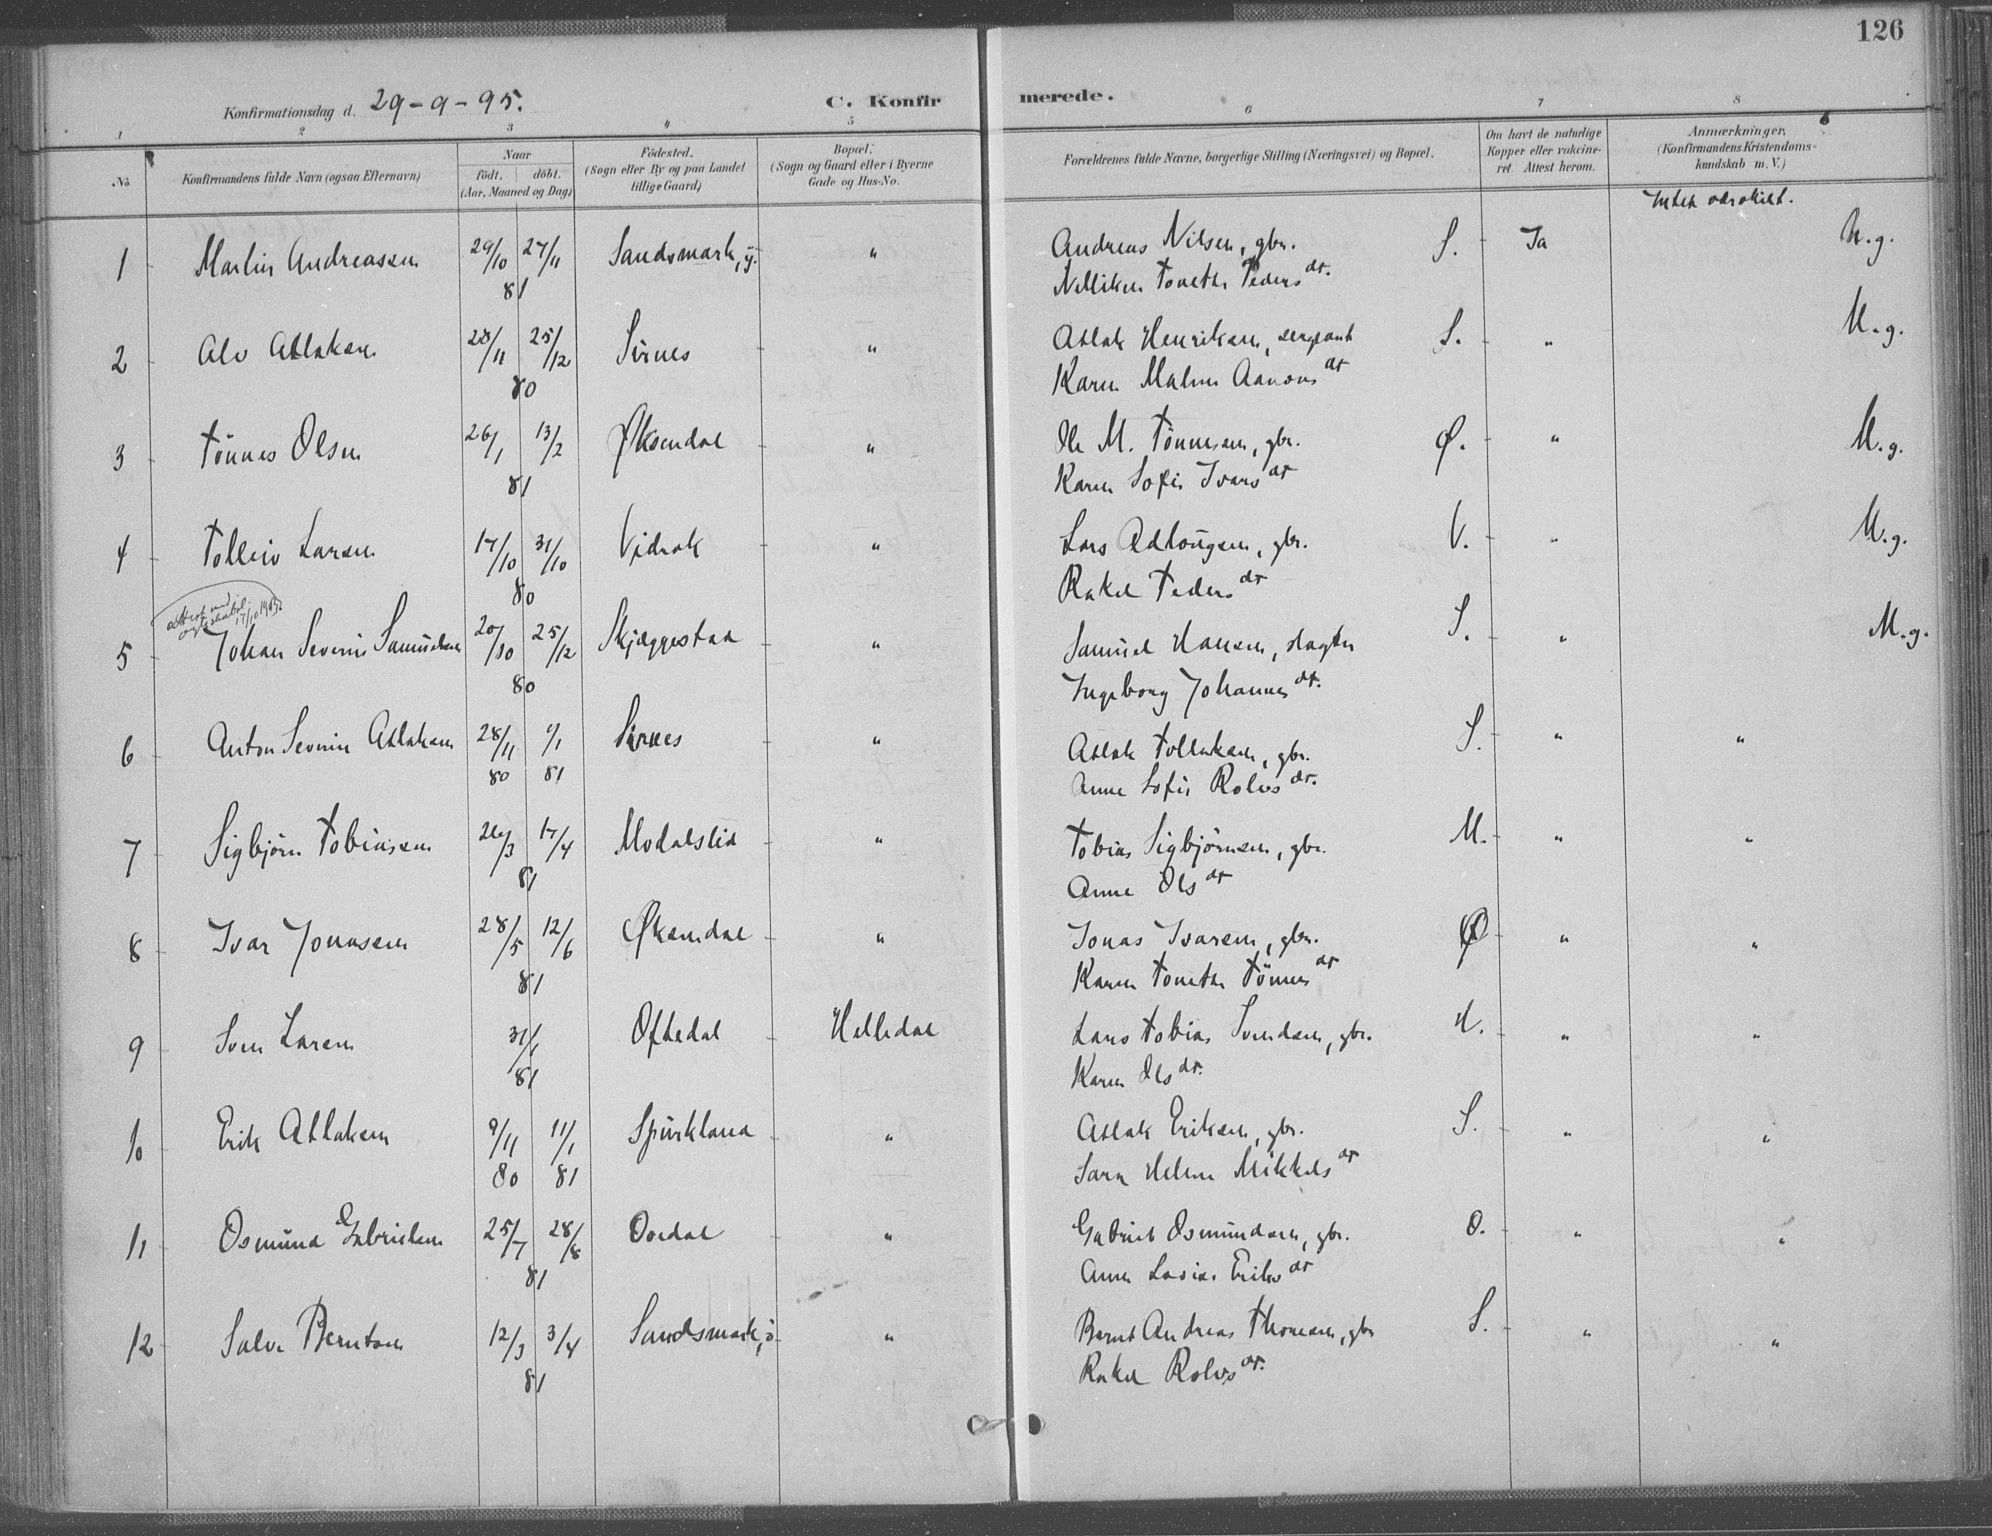 126
Konfirmationsdag d. 29-9-95. C. Konfirmerede.
1 2 3 4 5 6 7 8
No. Konfirmandens fulde Navn (ogsaa Efternavn) Naar født. døbt. (Aar, Maaned og Dag) Fødested. (Sogn eller By og paa Landet tillige Gaard) Bopæl. (Sogn og Gaard eller i Byerne Gade og Hus-No. Forældrenes fulde Navne, borgerlige Stilling (Næringsvei) og Bopæl. Om havt de naturlige Kopper eller vakcineret. Attest herom. Anmærkninger. (Konfirmandens Kristendomskundskab m. V.)
1 Martin Andreassen 29/10 27/11 81 Sandsmark, y. " Andreas Nilsen, gbr. S. Ja M.g.
Nelliken Tonethe Peders dr.
2 Alv Atlaksen 28/11 25/12 80 Sirnes " Atlak Henriksen, sergeant S. " M.g.
Karen Malene Aanons dr
3 Tönnes Olsen 26/1 13/2 81 Øksendal " Ole M. Tönnesen, gbr. Ø. " M.g.
Karen Sofie Ivars dr
4 Tolleiv Larsen 17/10 31/10 80 Vidrak " Lars Odlougsen, gbr. V. " M.g.
Rakel Peders dr
5 Johan Severin Samuelsen 20/10 25/12 80 Skjeggestad " Samuel Hansen, slagter S. " M.g.
Ingeborg Johannes dr.
6 Anton Severin Atlaksen 28/11 80 9/1 81 Sirnes " Atlak Tollaksen, gbr. S. " "
Anne Sofie Rolvs dr.
7 Sigbjørn Tobiassen 26/3 17/4 81 Modalsli " Tobias Sigbjörnsen, gbr. M. " "
Anne Ols dr
8 Ivar Jonassen 28/5 12/6 81 Øksendal " Jonas Ivarsen, gbr. Ø " "
Karen Tonethe Tönnes dr
9 Sven Larsen 31/1 81 Oftedal Helledal Lars Tobias Svendsen, gbr. H. " "
Karen Ols dr.
10 Erik Atlaksen 9/11 80 11/1 81 Spurkland " Atlak Eriksen, gbr. S. " "
Sara Helene Mikkels dr
11 Osmund Gabrielsen 25/7 28/8 81 Ovedal " Gabriel Osmundsen, gbr. O. " "
Anne Eriks dr
12 Salve Berntsen 12/3 3/4 81 Sandsmark, i. " Bernt Andreas Thomesen, gbr S. " "
Rakel Rolvs dr.